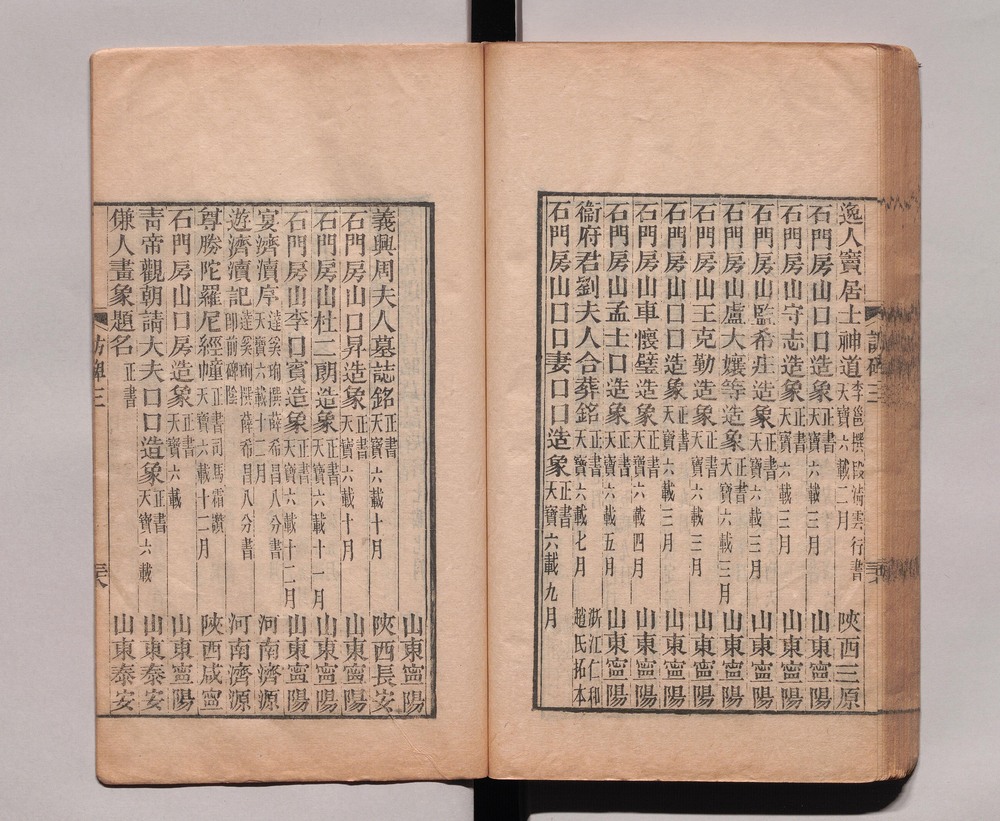 逸人竇居士神道 李邕撰 段清雲行書 天寶六載二月 陝西三原
石門房山口口造象 正書 天寶六載三月 山東甯陽
石門房山守志造象 正書 天寶六載三月 山東甯陽
石門房山監希莊造象 正書 天寶六載三月 山東甯陽
石門房山盧大孃等造象 正書 天寶六載三月 山東甯陽
石門房山王克勤造象 正書 天寶六載三月 山東甯陽
石門房山口口造象 正書 天寶六載三月 山東甯陽
石門房山車懷璧造象 正書 天寶六載四月 山東甯陽
石門房山孟士口造象 正書 天寶六載五月 山東甯陽
衞府君劉夫人合葬銘 正書 天寶六載七月 浙江仁和趙氏拓本
石門房山口口妻口口造象 正書 天寶六載九月
山東甯陽
義興周夫人墓誌銘 正書 天寶六載十月 陝西長安
石門房山口昇造象 正書 天寶六載十月 山東甯陽
石門房山杜二朗造象 正書 天寶六載十一月 山東甯陽
石門房山李口賓造象 正書 天寶六載十二月 山東甯陽
宴濟瀆序 達奚珣撰 薛希昌八分書 天寶六載十二月 河南濟源
遊濟瀆記 達奚珣撰 薛希昌八分書 即前碑陰 河南濟源
尊勝陀羅尼經幢 正書 司馬霜讚 天寶六載十二月 陝西咸甯
石門房山口房造象 正書 天寶六載 山東甯陽
青帝觀朝請大夫口口造象 正書 天寶六載 山東泰安
傔人畫象題名 正書 山東泰安
訪碑三